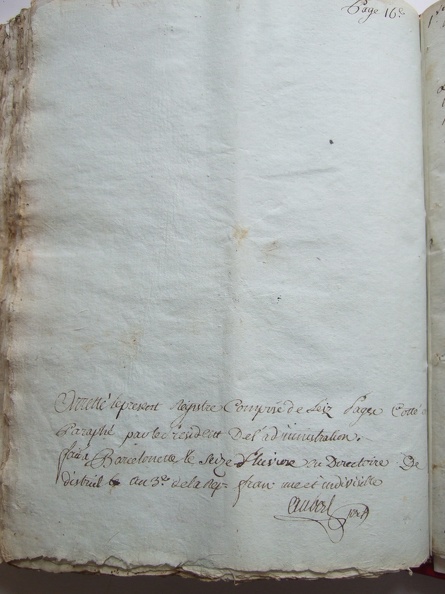 Page 16e
Arretté le present Registre Composé de Seiz pages Cotté
Paraphé par le président De l'administration.
fait a Barcelonne le seize Pluviose au Directoire De
district an 3e de la Rep. fran une et indivisible